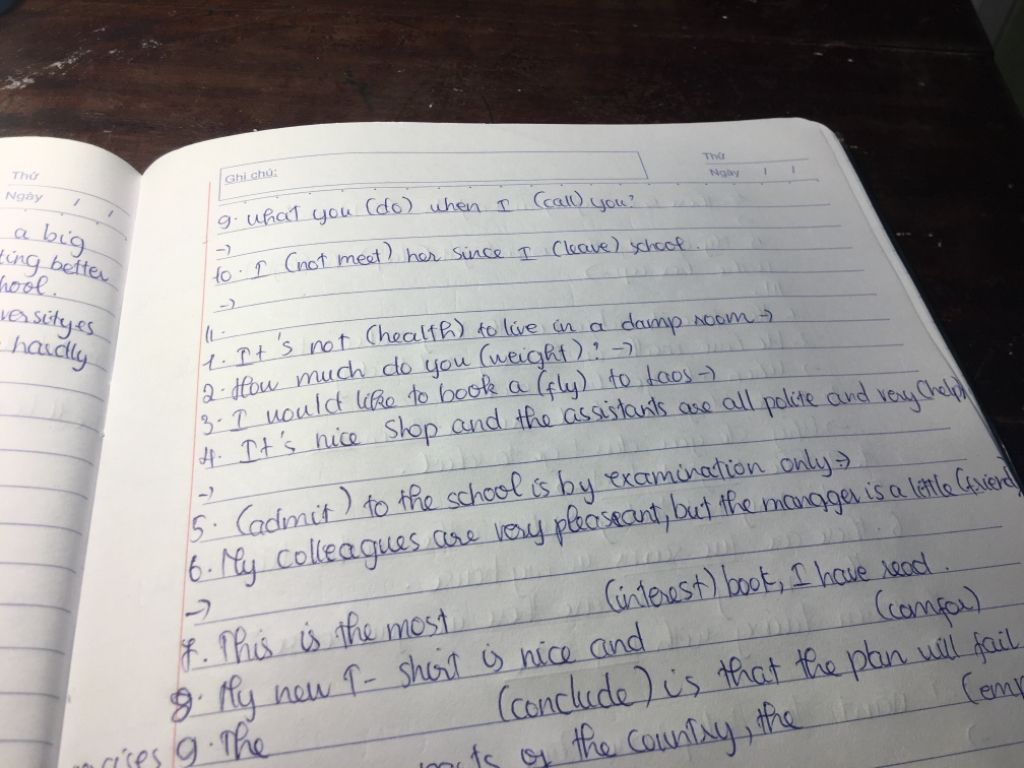 Thứ
Ngày / /
a big
ting better
hool.
versityes
hardly
Ghi chú:
Thứ
Ngày / /
9. What you (do) when I (call) you?
->
10. I (not meet) her since I (leave) school.
->
II.
1. It's not (health) to live in a damp room ->
2. How much do you (weight)? ->
3. I would like to book a (fly) to Laos ->
4. It's nice shop and the assistants are all polite and very (help)
->
5. (admit) to the school is by examination only ->
6. My colleagues are very pleaseant, but the manager is a little (friend)
->
7. This is the most (interest) book, I have read.
8. My new T-shirt is nice and (comfor)
9. The (conclude) is that the plan will fail
of the country, the (emp